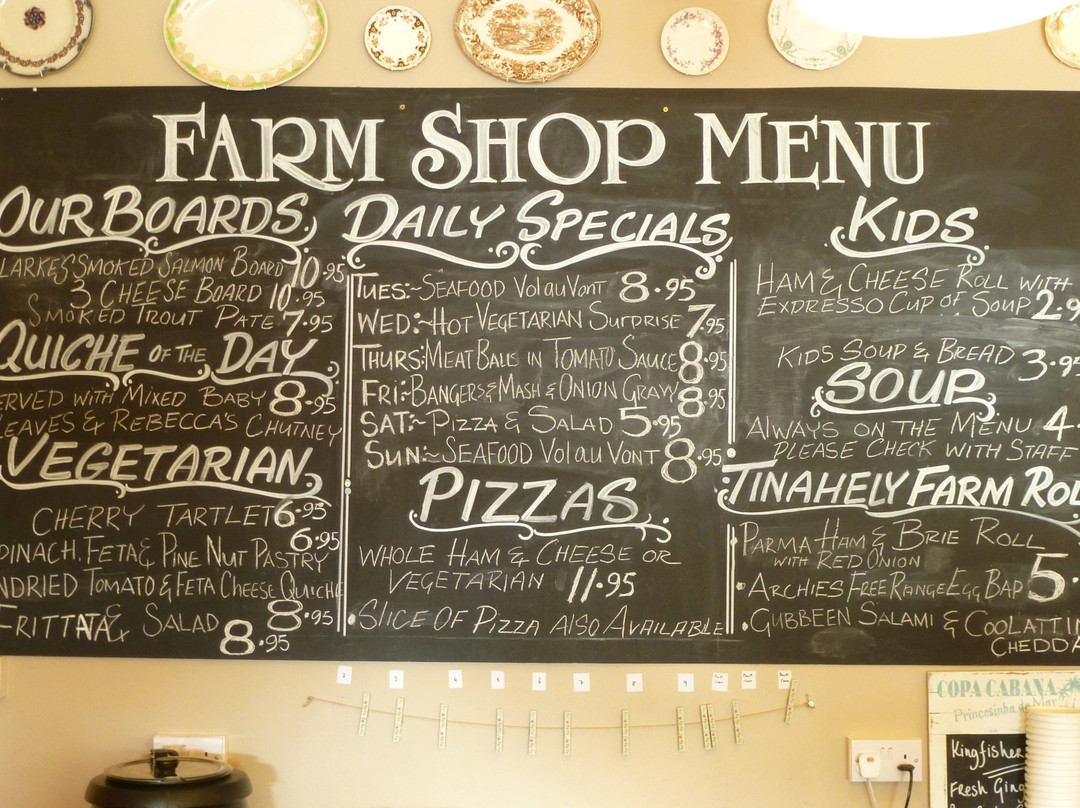 FARM SHOP MENU
OUR BOARDS
LARKES SMOKED SALMON BOARD 10.95
3 CHEESE BOARD 10.95
SMOKED TROUT PATE 7.95
QUICHE OF THE DAY
ERVED WITH MIXED BABY 8.95
LEAVES & REBECCA'S CHUTNEY
VEGETARIAN
CHERRY TARTLET 6.95
PINACH, FETA & PINE NUT PASTRY 6.95
NDRIED TOMATO & FETA CHEESE QUICHE 8.95
FRITTATA & SALAD 8.95
DAILY SPECIALS
TUES:~ SEAFOOD Vol au Vont 8.95
WED:~ HOT VEGETARIAN SURPRISE 7.95
THURS: MEAT BALLS IN TOMATO SAUCE 8.95
FRI:~ BANGERS & MASH & ONION GRAVY 8.95
SAT:~ PIZZA & SALAD 5.95
SUN:~ SEAFOOD Vol au VONT 8.95
PIZZAS
WHOLE HAM & CHEESE OR
VEGETARIAN 11.95
• SLICE OF PIZZA ALSO AVAILABLE
KIDS
HAM & CHEESE ROLL WITH
EXPRESSO CUP OF SOUP 2.9
KIDS SOUP & BREAD 3.95
SOUP
ALWAYS ON THE MENU 4.
PLEASE CHECK WITH STAFF
TINAHELY FARM ROL
• PARMA HAM & BRIE ROLL
WITH RED ONION
• ARCHIES FREE RANGE EGG BAP 5.
• GUBBEEN SALAMI & COOLATTIN
CHEDDA
COPA CABANA
Princesinha do Mar
Kingfisher
Fresh Ging